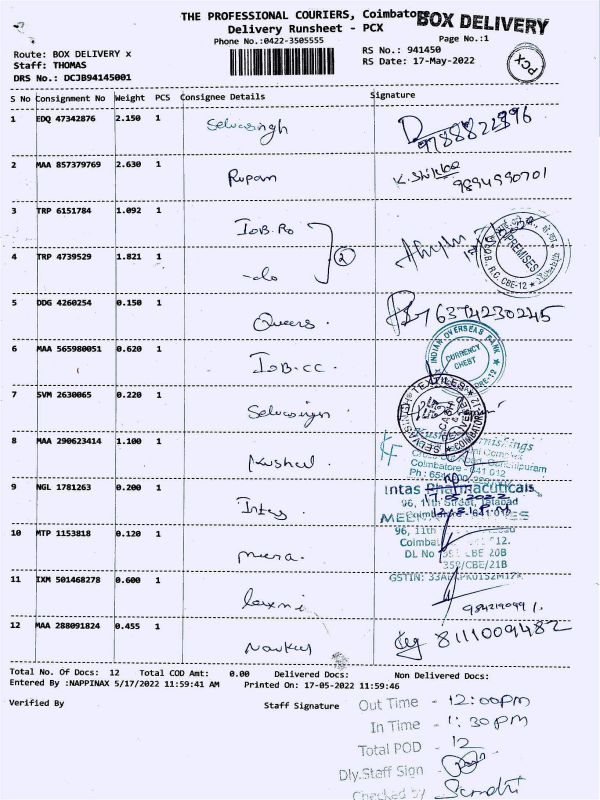 THE PROFESSIONAL COURIERS, Coimbatore
BOX DELIVERY
Delivery Runsheet - PCX
Phone No.:0422-3505555
Page No.:1
Route: BOX DELIVERY x
RS No.: 941450
Staff: THOMAS
RS Date: 17-May-2022
PCX
DRS No.: DCJB94145001
S No Consignment No Weight PCS Consignee Details Signature
1 EDQ 47342876 2.150 1 Selvasingh 9788822896
2 MAA 857379769 2.630 1 Rupam 9894990701
3 TRP 6151784 1.092 1 IOB.Ro
4 TRP 4739529 1.821 1 -do 2
PREMISES
CBE-12
5 DDG 4260254 0.150 1 Queens. 6374230245
6 MAA 565980051 0.620 1 IOB.CC.
INDIAN OVERSEAS BANK
CURRENCY CHEST
CBE-12
7 SVM 2630065 0.220 1 Selvasingh
SELVASINGH TEXTILES
COIMBATORE
8 MAA 290623414 1.100 1 Kushal
Coimbatore - 641 012
9 NGL 1781263 0.200 1 Intas
Intas Pharmacuticals
96, 11th Street,
10 MTP 1153818 0.120 1 meera.
96, 11th
DL No
CBE 20B
359/CBE/21B
11 IXM 501468278 0.600 1 laxmi
GSTIN:
12 MAA 288091824 0.455 1 8111009482
Total No. Of Docs: 12 Total COD Amt: 0.00 Delivered Docs: Non Delivered Docs:
Entered By :NAPPINAX 5/17/2022 11:59:41 AM Printed On: 17-05-2022 11:59:46
Verified By Staff Signature
Out Time - 12:00pm
In Time - 1:30pm
Total POD - 12
Dly.Staff Sign -
Checked by